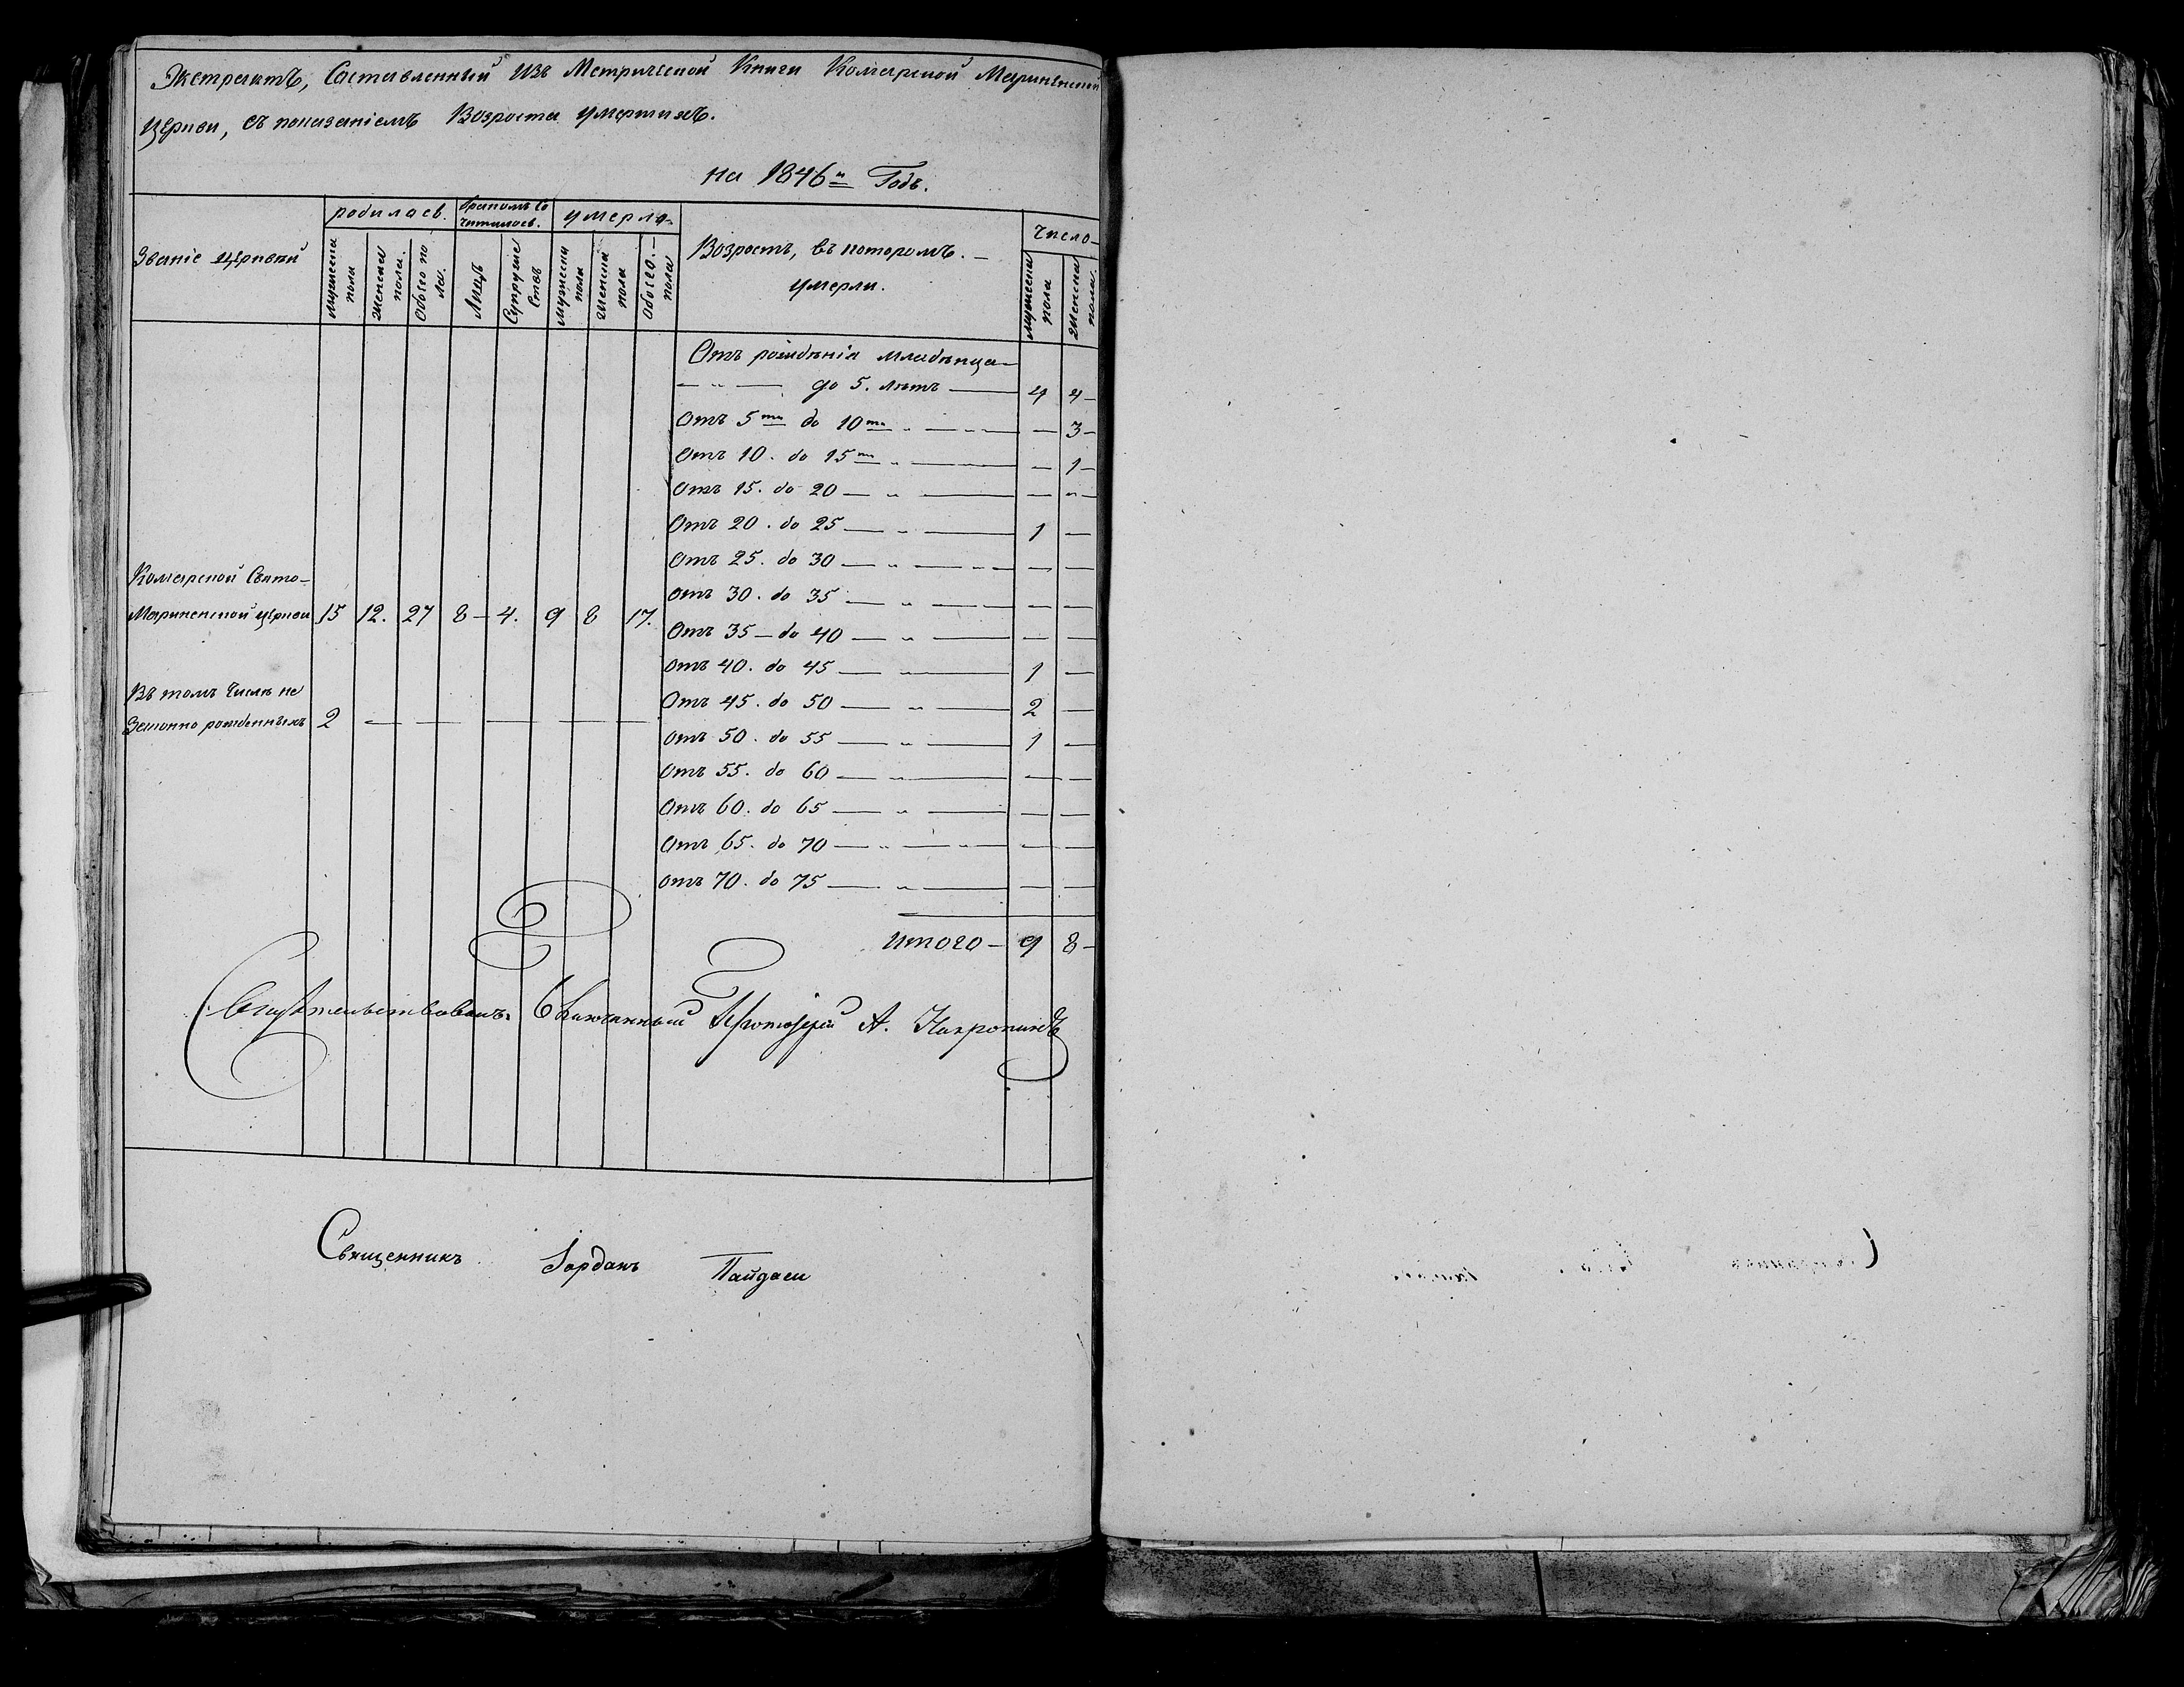 Экстрактъ, Составленный Изъ Метрической Книги Комарской Маринской
Церкви, съ показаніемъ Возроста умертихъ.
на 1846й Годъ.
Званіе Церквей
родилось.
бракомъ Со
читалось.
умерло
Возростъ, въ котором. —
умерли.
Число
Мужеска пола
Женска пола.
Обоего по ла.
Лицъ
Супруже ствъ
Мужеска пола
Женска пола
Обоего. — пола
Мужеска пола
Женска пола.
Отъ рожденія младенца —
— „ — до 5. лѣтъ — 4 4 —
Отъ 5ти до 10ти „ — „ — — 3 —
Отъ 10. до 15ти „ — „ — — 1 —
Отъ 15. до 20 — „ — — „ —
Отъ 20. до 25 — „ — 1 —
Отъ 25. до 30 — „ — „ — — —
Отъ 30. до 35 — „ — — —
Отъ 35 — до 40 — „ — — —
Отъ 40. до 45 — „ — 1 —
Отъ 45. до 50 — „ — 2 —
Отъ 50. до 55 — „ — 1 —
Отъ 55. до 60 — „ — — —
Отъ 60. до 65 — „ — — —
Отъ 65. до 70 — „ — „ — — —
Отъ 70. до 75 — „ — — —
Комарской Свято-
Маринской церкви 15 12. 27 8 — 4. 9 8 17.
Въ томъ Числѣ не
Законно рожденныхъ 2 — — — — —
Итого — 9 8 —
Свидѣтельствовалъ: Благочинный Протоіерей А.
Священникъ Іорданъ Пайдаси